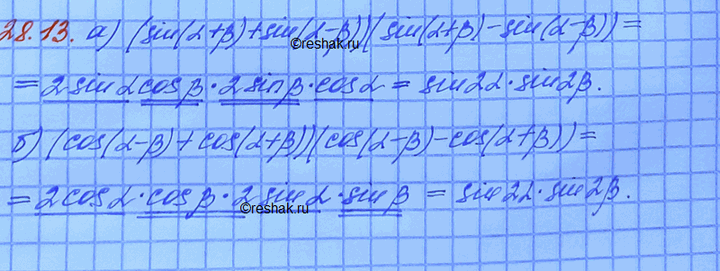 28.13. а) (sin(α+β)+sin(α-β))(sin(α+β)-sin(α-β))=
©reshak.ru
= 2 sin α cos β · 2 sin β · cos α = sin 2α · sin 2β.
б) (cos(α-β)+cos(α+β))(cos(α-β)-cos(α+β))=
= 2 cos α · cos β · 2 sin α · sin β = sin 2α · sin 2β.
©reshak.ru